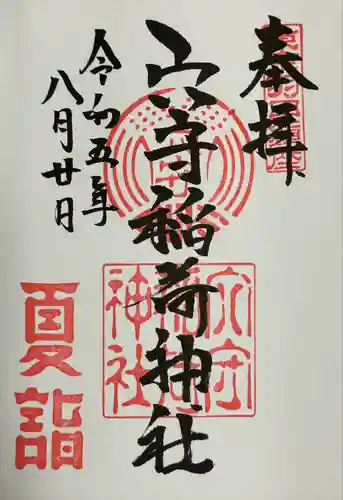 奉拝
穴守稲荷神社
令和五年
八月廿日
穴守
稲荷
神社
夏詣